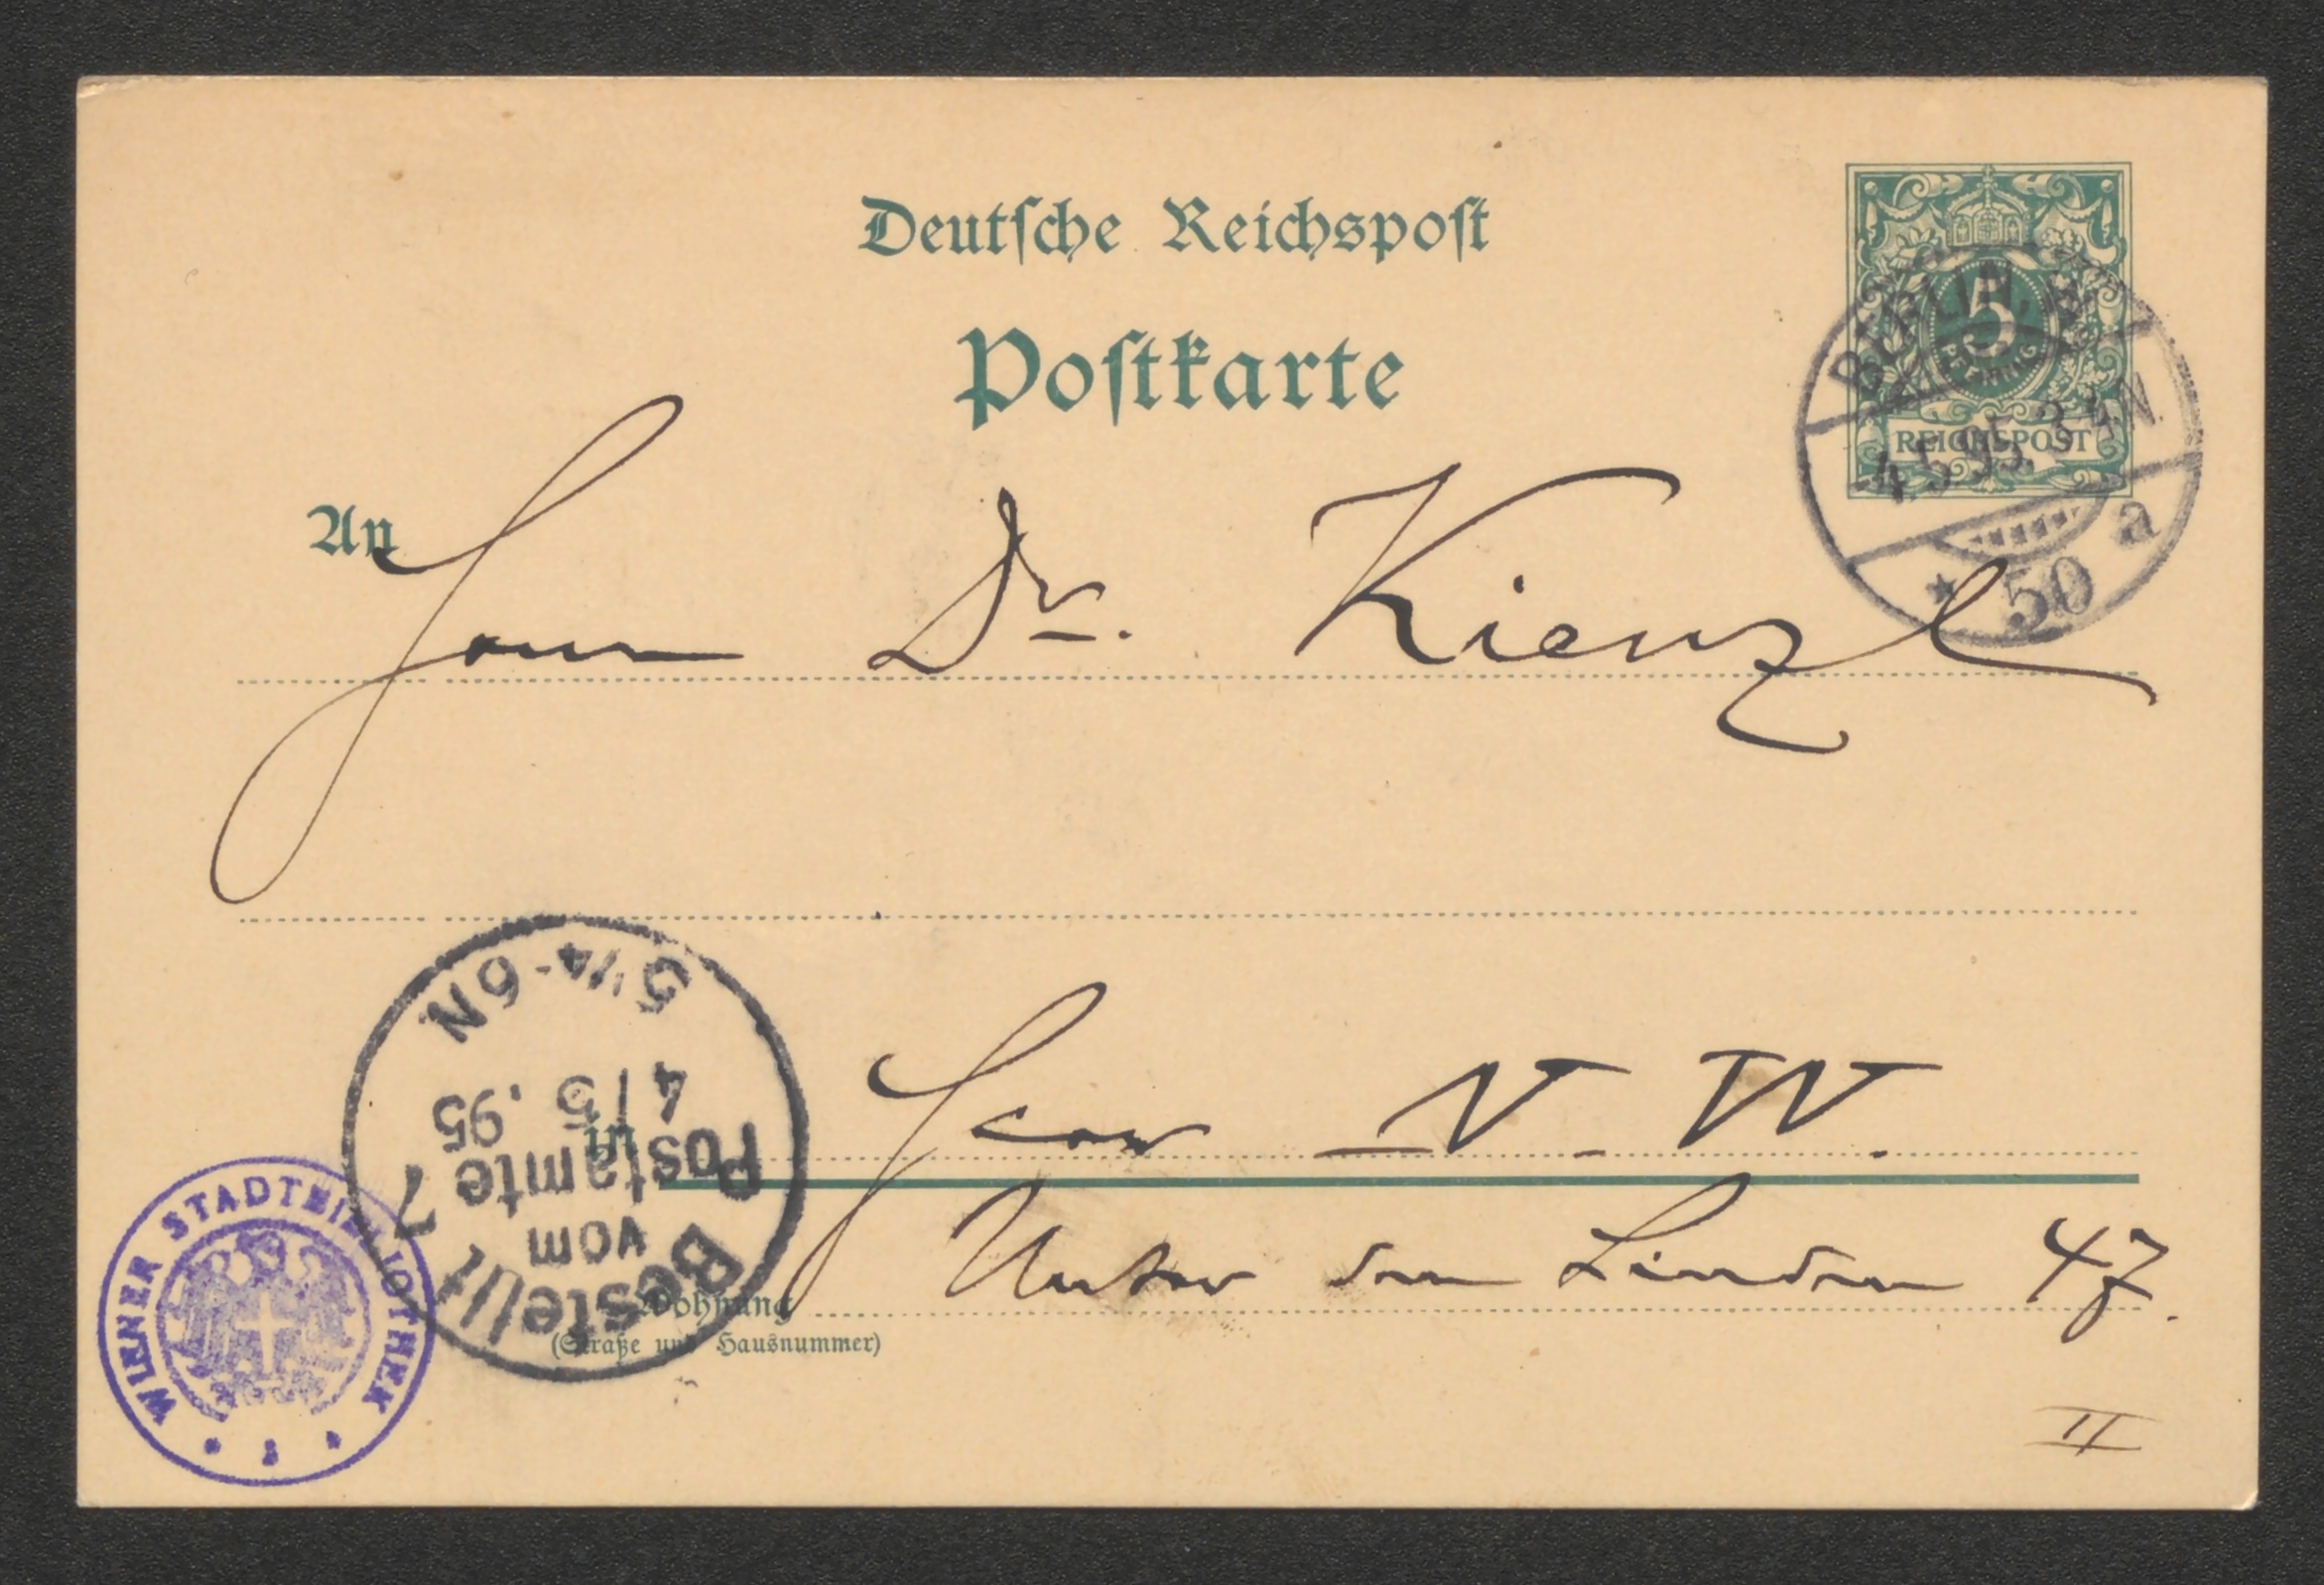 Deutsche Reichspost
Postkarte
5
PFENNIG
REICHSPOST
BERLIN, W
-4.5.95. 3-4 N.
a
* 50
An
Herrn Dr. Kienzl
in
Hier N. W.
Unter den Linden 47.
Wohnung
(Straße und Hausnummer)
II
Bestellt
vom
Postamte 7
4/5.95
5 1/4-6N
WIENER STADTBIBLIOTHEK